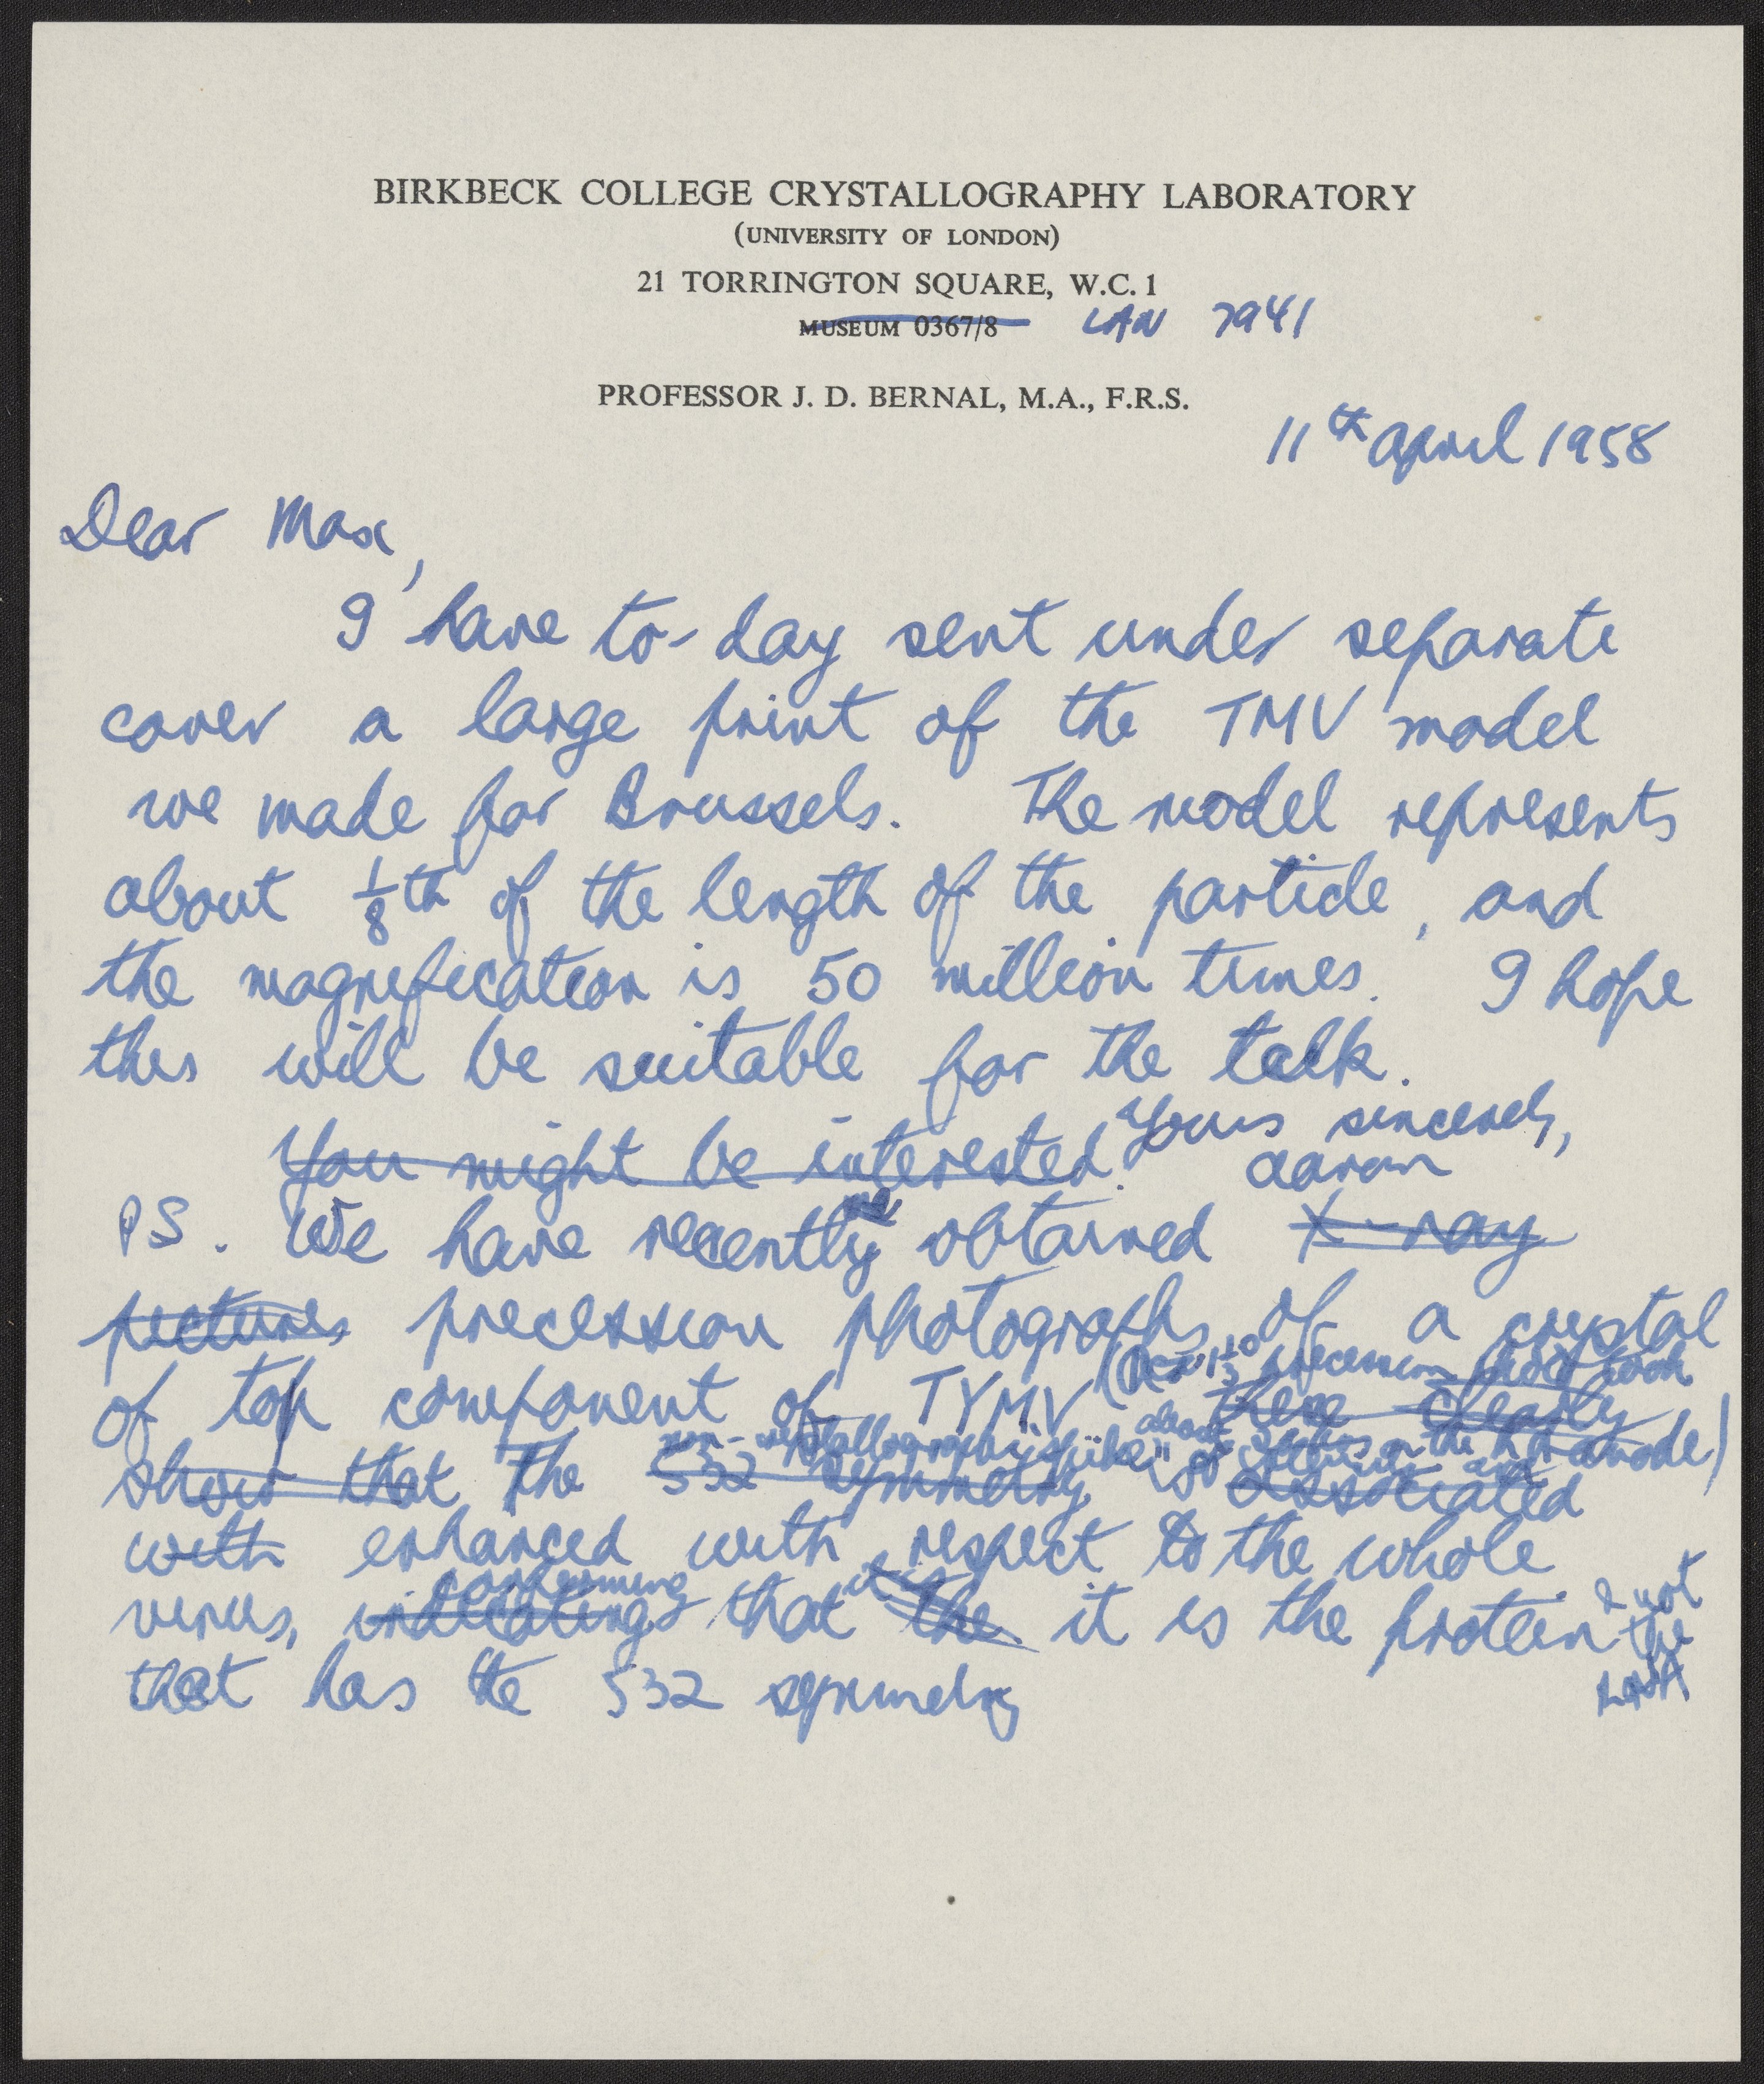 BIRKBECK COLLEGE CRYSTALLOGRAPHY LABORATORY
(UNIVERSITY OF LONDON)
21 TORRINGTON SQUARE, W.C. 1
MUSEUM 0367/8 LAN 7941
PROFESSOR J. D. BERNAL, M.A., F.R.S.
11th April 1958
Dear Max,
I have to-day sent under separate
cover a large print of the TMV model
we made for Brussels. The model represents
about 1/8th of the length of the particle, and
the magnification is 50 million times. I hope
this will be suitable for the talk.
Yours sincerely,
You might be interested. Aaron
PS. We have recently obtained X-ray
pictures precession photographs of a crystal
of top component of TYMV ( precession photo took
these clearly
about on the anode)
non-crystallographic "spike" is
show that the 532 symmetry associated
with enhanced with respect to the whole
confirming it is & not
virus, indicating that the it is the protein the
that has the 532 symmetry RNA